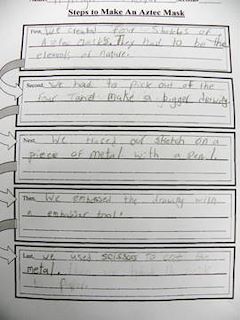 Steps to Make An Aztec Mask
First, We created four Sketches of
Aztec Masks. They had to be the
of Nature.
Second, We had to pick out of the
four and make a bigger drawing.
Next, We traced our sketch on a
piece of metal with a pen.
Then, We embossed the drawing with
a tool.
Last, we used scissors to cut the
metal.